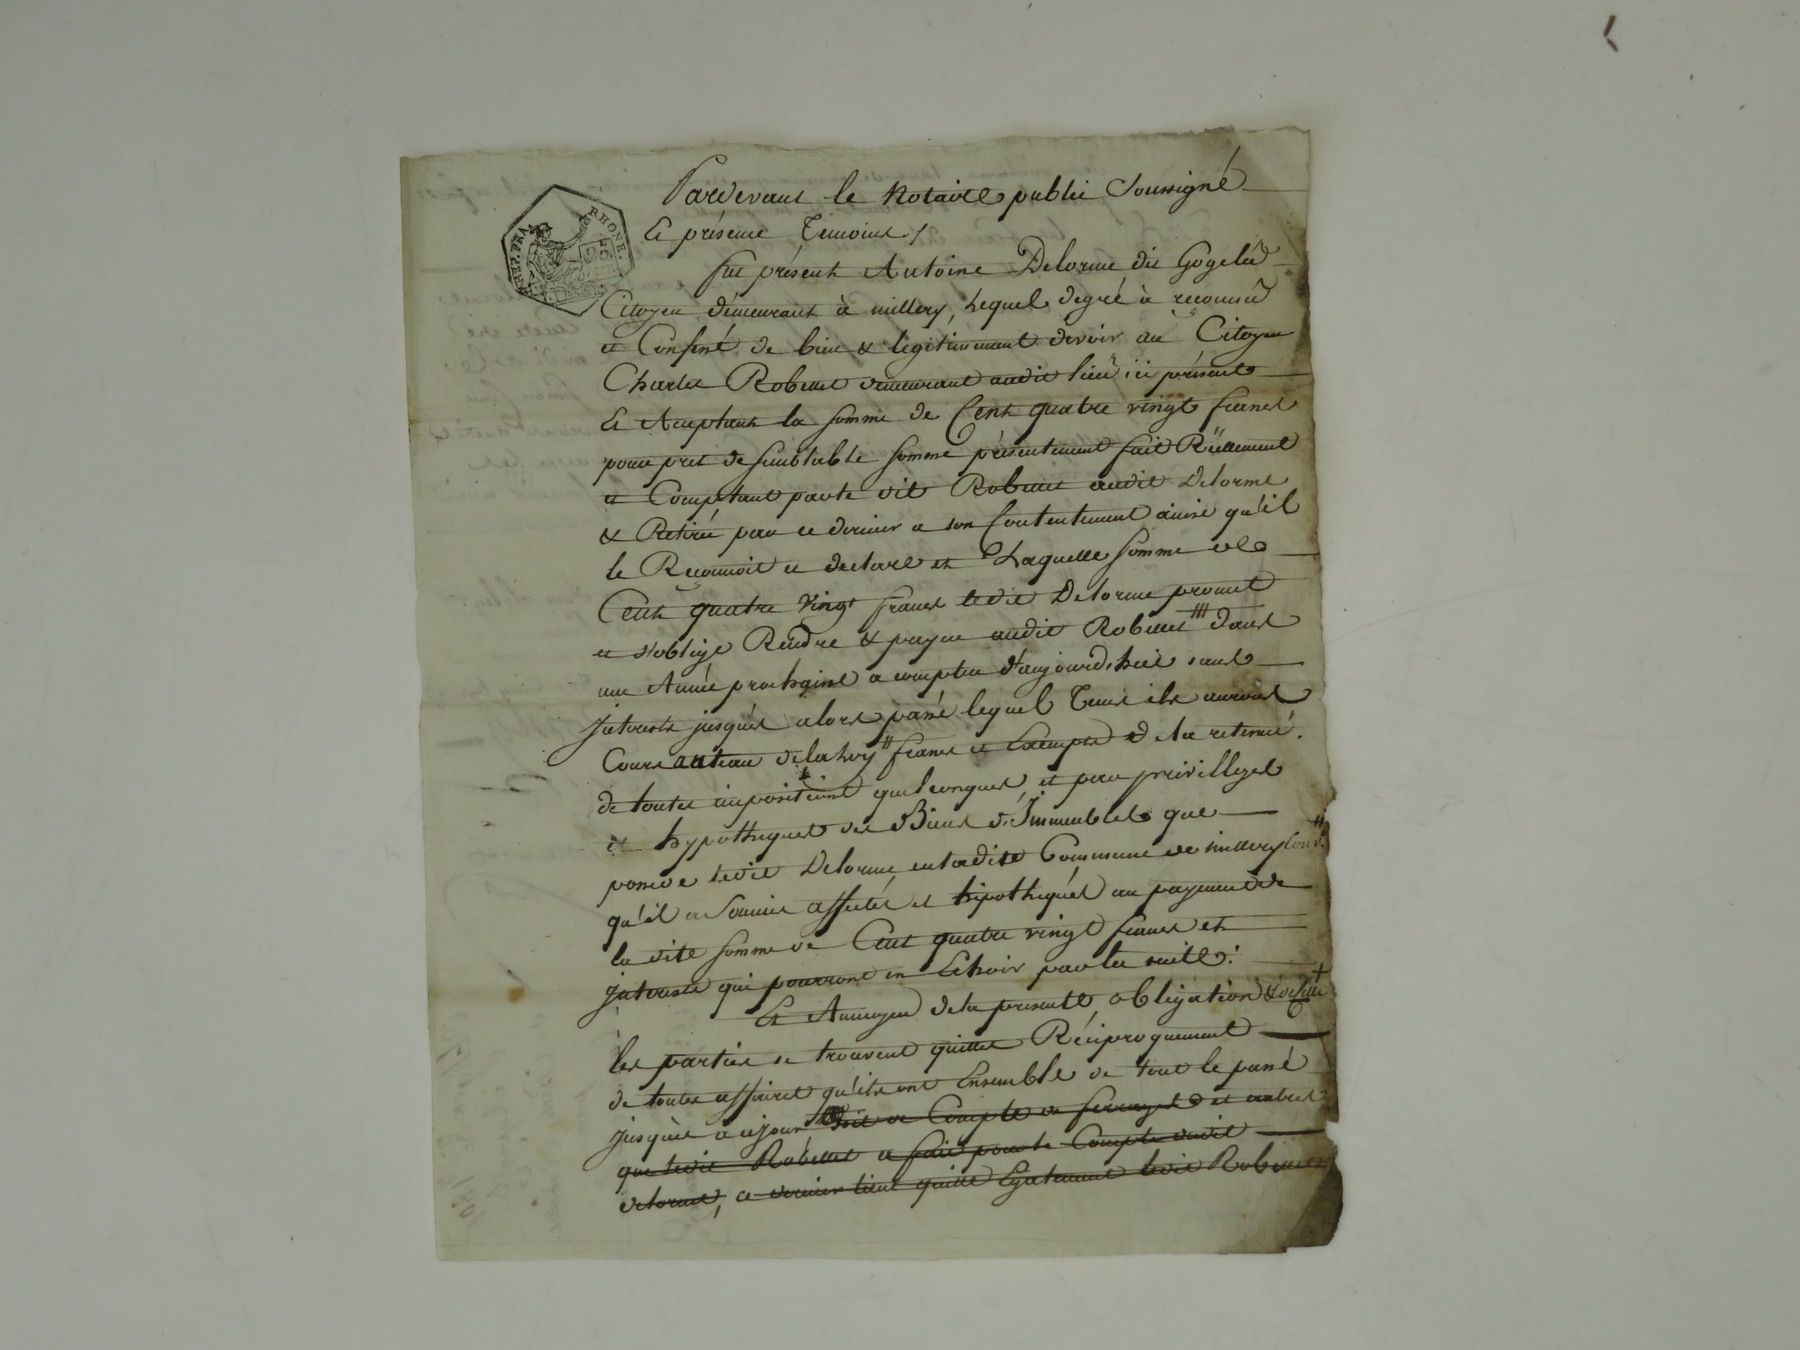 REP. FRA.
RHONE.
25
Pardevant le Notaire public Soussigné
Et présence Temoins /
fut présent Antoine Delorme dit Gogelu
Citoyen démeurant à millery, Lequel degré à reconnu
et Confessé de bien & légitimement devoir au Citoyen
Charles Robellet demeurant audit lieu ici présent
Et Acceptant la somme de Cent quatre vingt francs
pour pret de semblable somme présentement fait Réellement
et Comptant par le dit Robellet audit Delorme
& Retiré par ce dernier a son Contentement ainsi qu'il
le Reconnoit et declare et Laquelle somme de
Cent quatre vingt francs ledit Delorme promet
et s'oblige Rendre & payer audit Robellet dans
une Année prochaine a compter d'aujourd'hui sans
jnterests jusques alors passé lequel Tems ils auront
Cours au taux de la Loy francs et Exempts de la retenue
de toutes impositions quelconques, et par privilleges
et hypotheques des Biens d'Immeubles que
possede ledit Delorme en la dite Commune de millery
qu'il a Soumis affectés et hipothéqués au payement de
la dite somme de Cent quatre vingt francs et
jnterests qui pourront en Echoir par la suite :
Et Aumoyen de la presente obligation
les parties se trouvent quittes Réciproquement
de toutes affaires qu'ils ont Ensemble de tout le passé
jusques a ce jour soit de Compte de ferrages et autres
que ledit Robellet a fait pour le Compte dudit
delorme, ce dernier tient quitte Egalement ledit Robellet